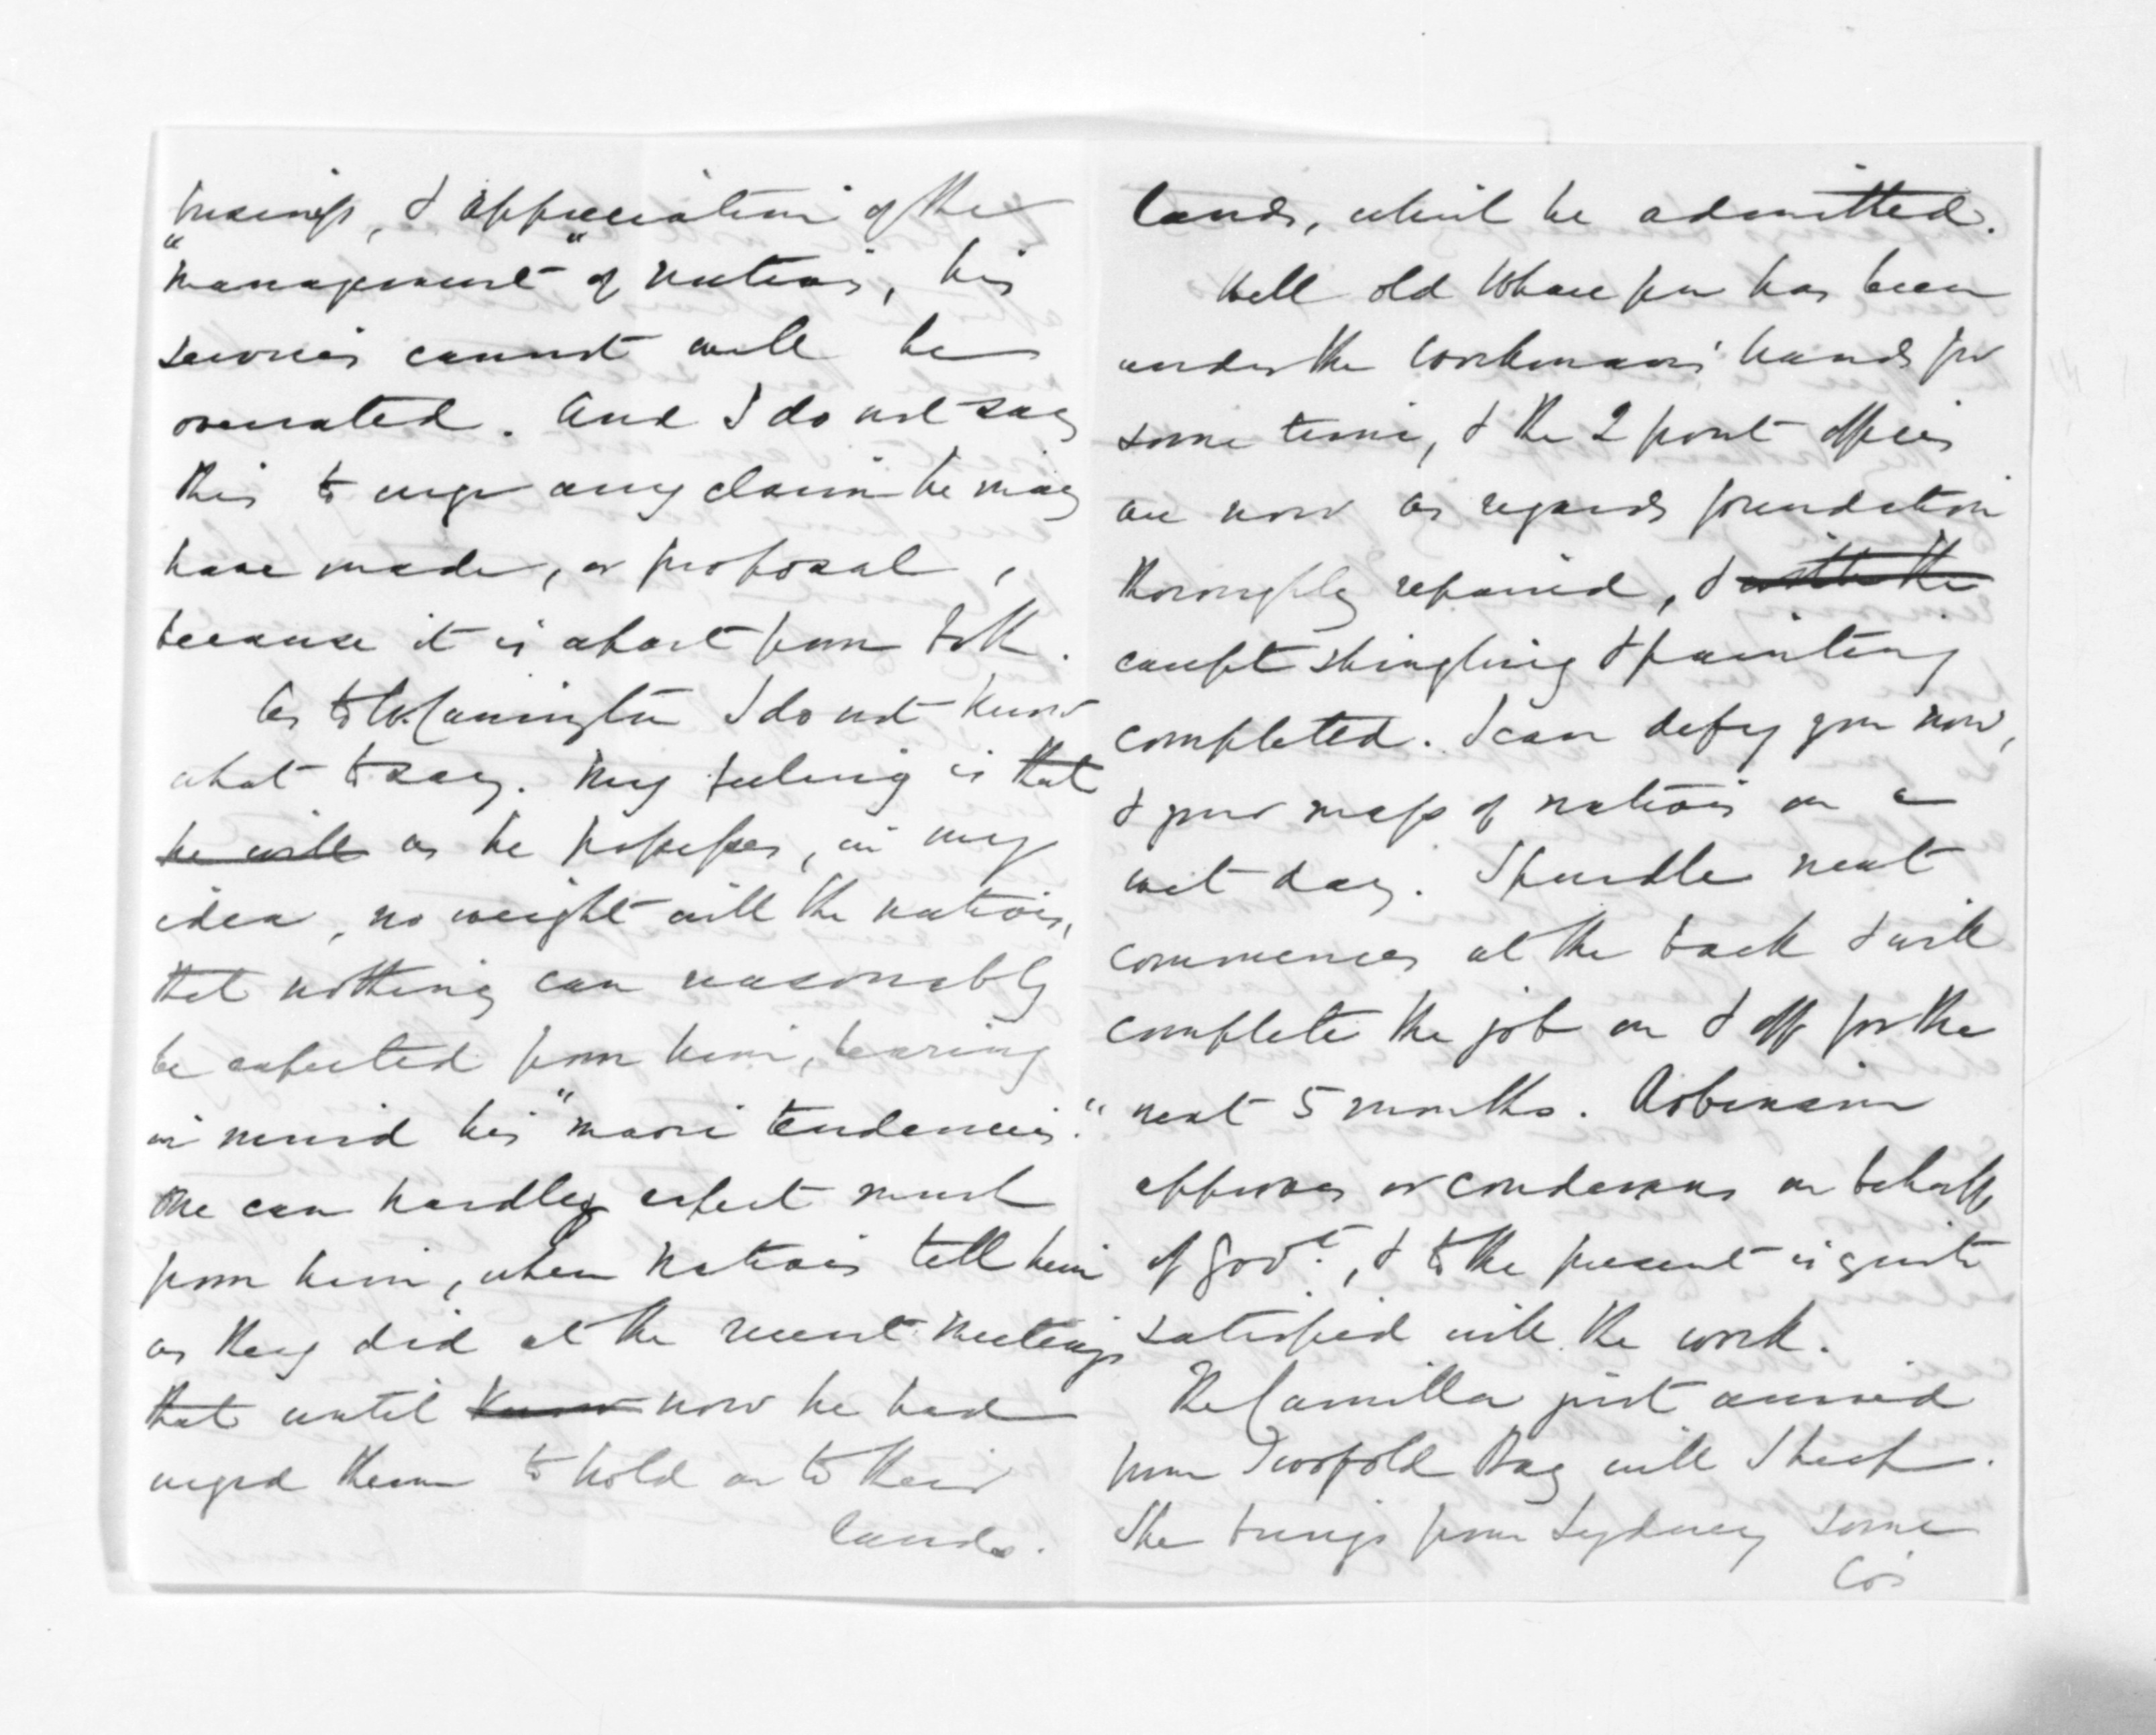 business, & appreciation of the
"management" of natives, his
services cannot well be
overrated. And I do not say
this to urge any claim he may
have made, or proposal,
because it is apart from both.
As to W. Cannington I do not know
what to say. My feeling is that
he will as he possesses, in my
idea, no weight with the natives,
that nothing can reasonably
be expected from him, bearing
in mind his "maori tendencies."
One can hardly expect much
from him, when Natives tell him
as they did at the recent meetings
that until know now he had
urged them to hold on to their
lands.
lands, whilst he admitted.
Well old Whare has been
under the workmans' hands for
some time, & the 2 front offices
are now as regards foundation
thoroughly repaired, & with the
except shingling & painting
completed. I can defy you now,
& your mass of natives on a
wet day. Spurdle next
commences at the back & will
complete the job on & off for the
next 5 months. Robinson
approves or condemns on behalf
of Govt., & to the present is quite
satisfied with the work.
The Camilla just arrived
from Twofold Bay with Sheep.
She brings from Sydney some
Co's